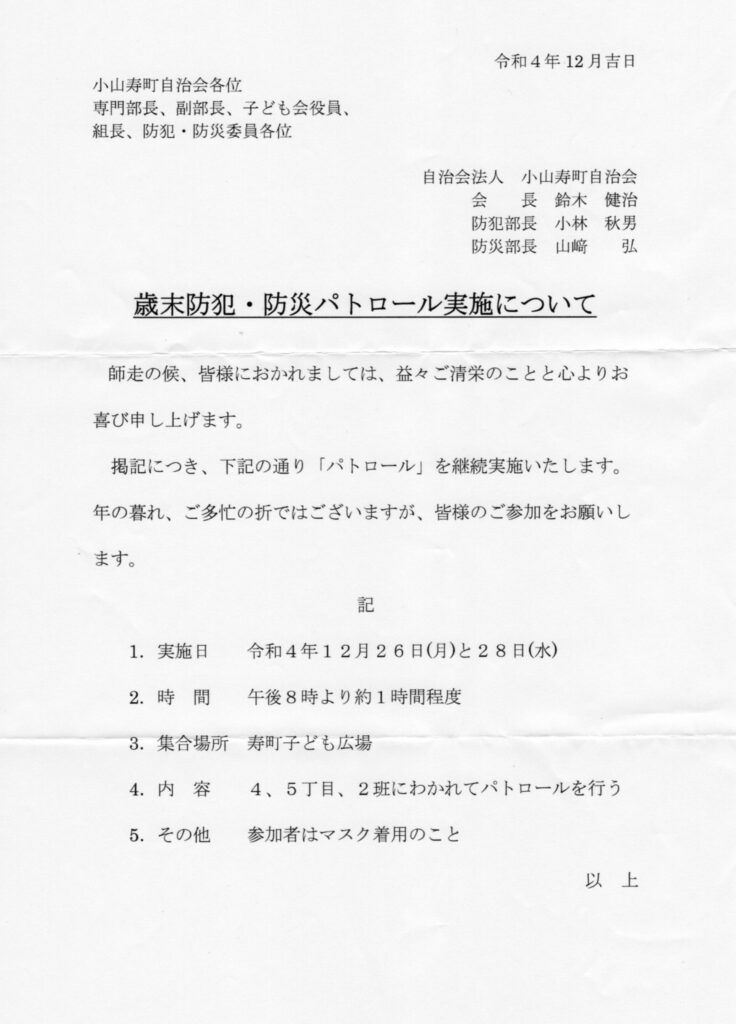 令和４年12月吉日
小山寿町自治会各位
専門部長、副部長、子ども会役員、
組長、防犯・防災委員各位
自治会法人　小山寿町自治会
会　　長　鈴木　健治
防犯部長　小林　秋男
防災部長　山﨑　　弘
歳末防犯・防災パトロール実施について
師走の候、皆様におかれましては、益々ご清栄のことと心よりお
喜び申し上げます。
掲記につき、下記の通り「パトロール」を継続実施いたします。
年の暮れ、ご多忙の折ではございますが、皆様のご参加をお願いし
ます。
記
1. 実施日　　令和４年１２月２６日(月)と２８日(水)
2. 時　間　　午後８時より約１時間程度
3. 集合場所　寿町子ども広場
4. 内　容　　４、５丁目、２班にわかれてパトロールを行う
5. その他　　参加者はマスク着用のこと
以　上